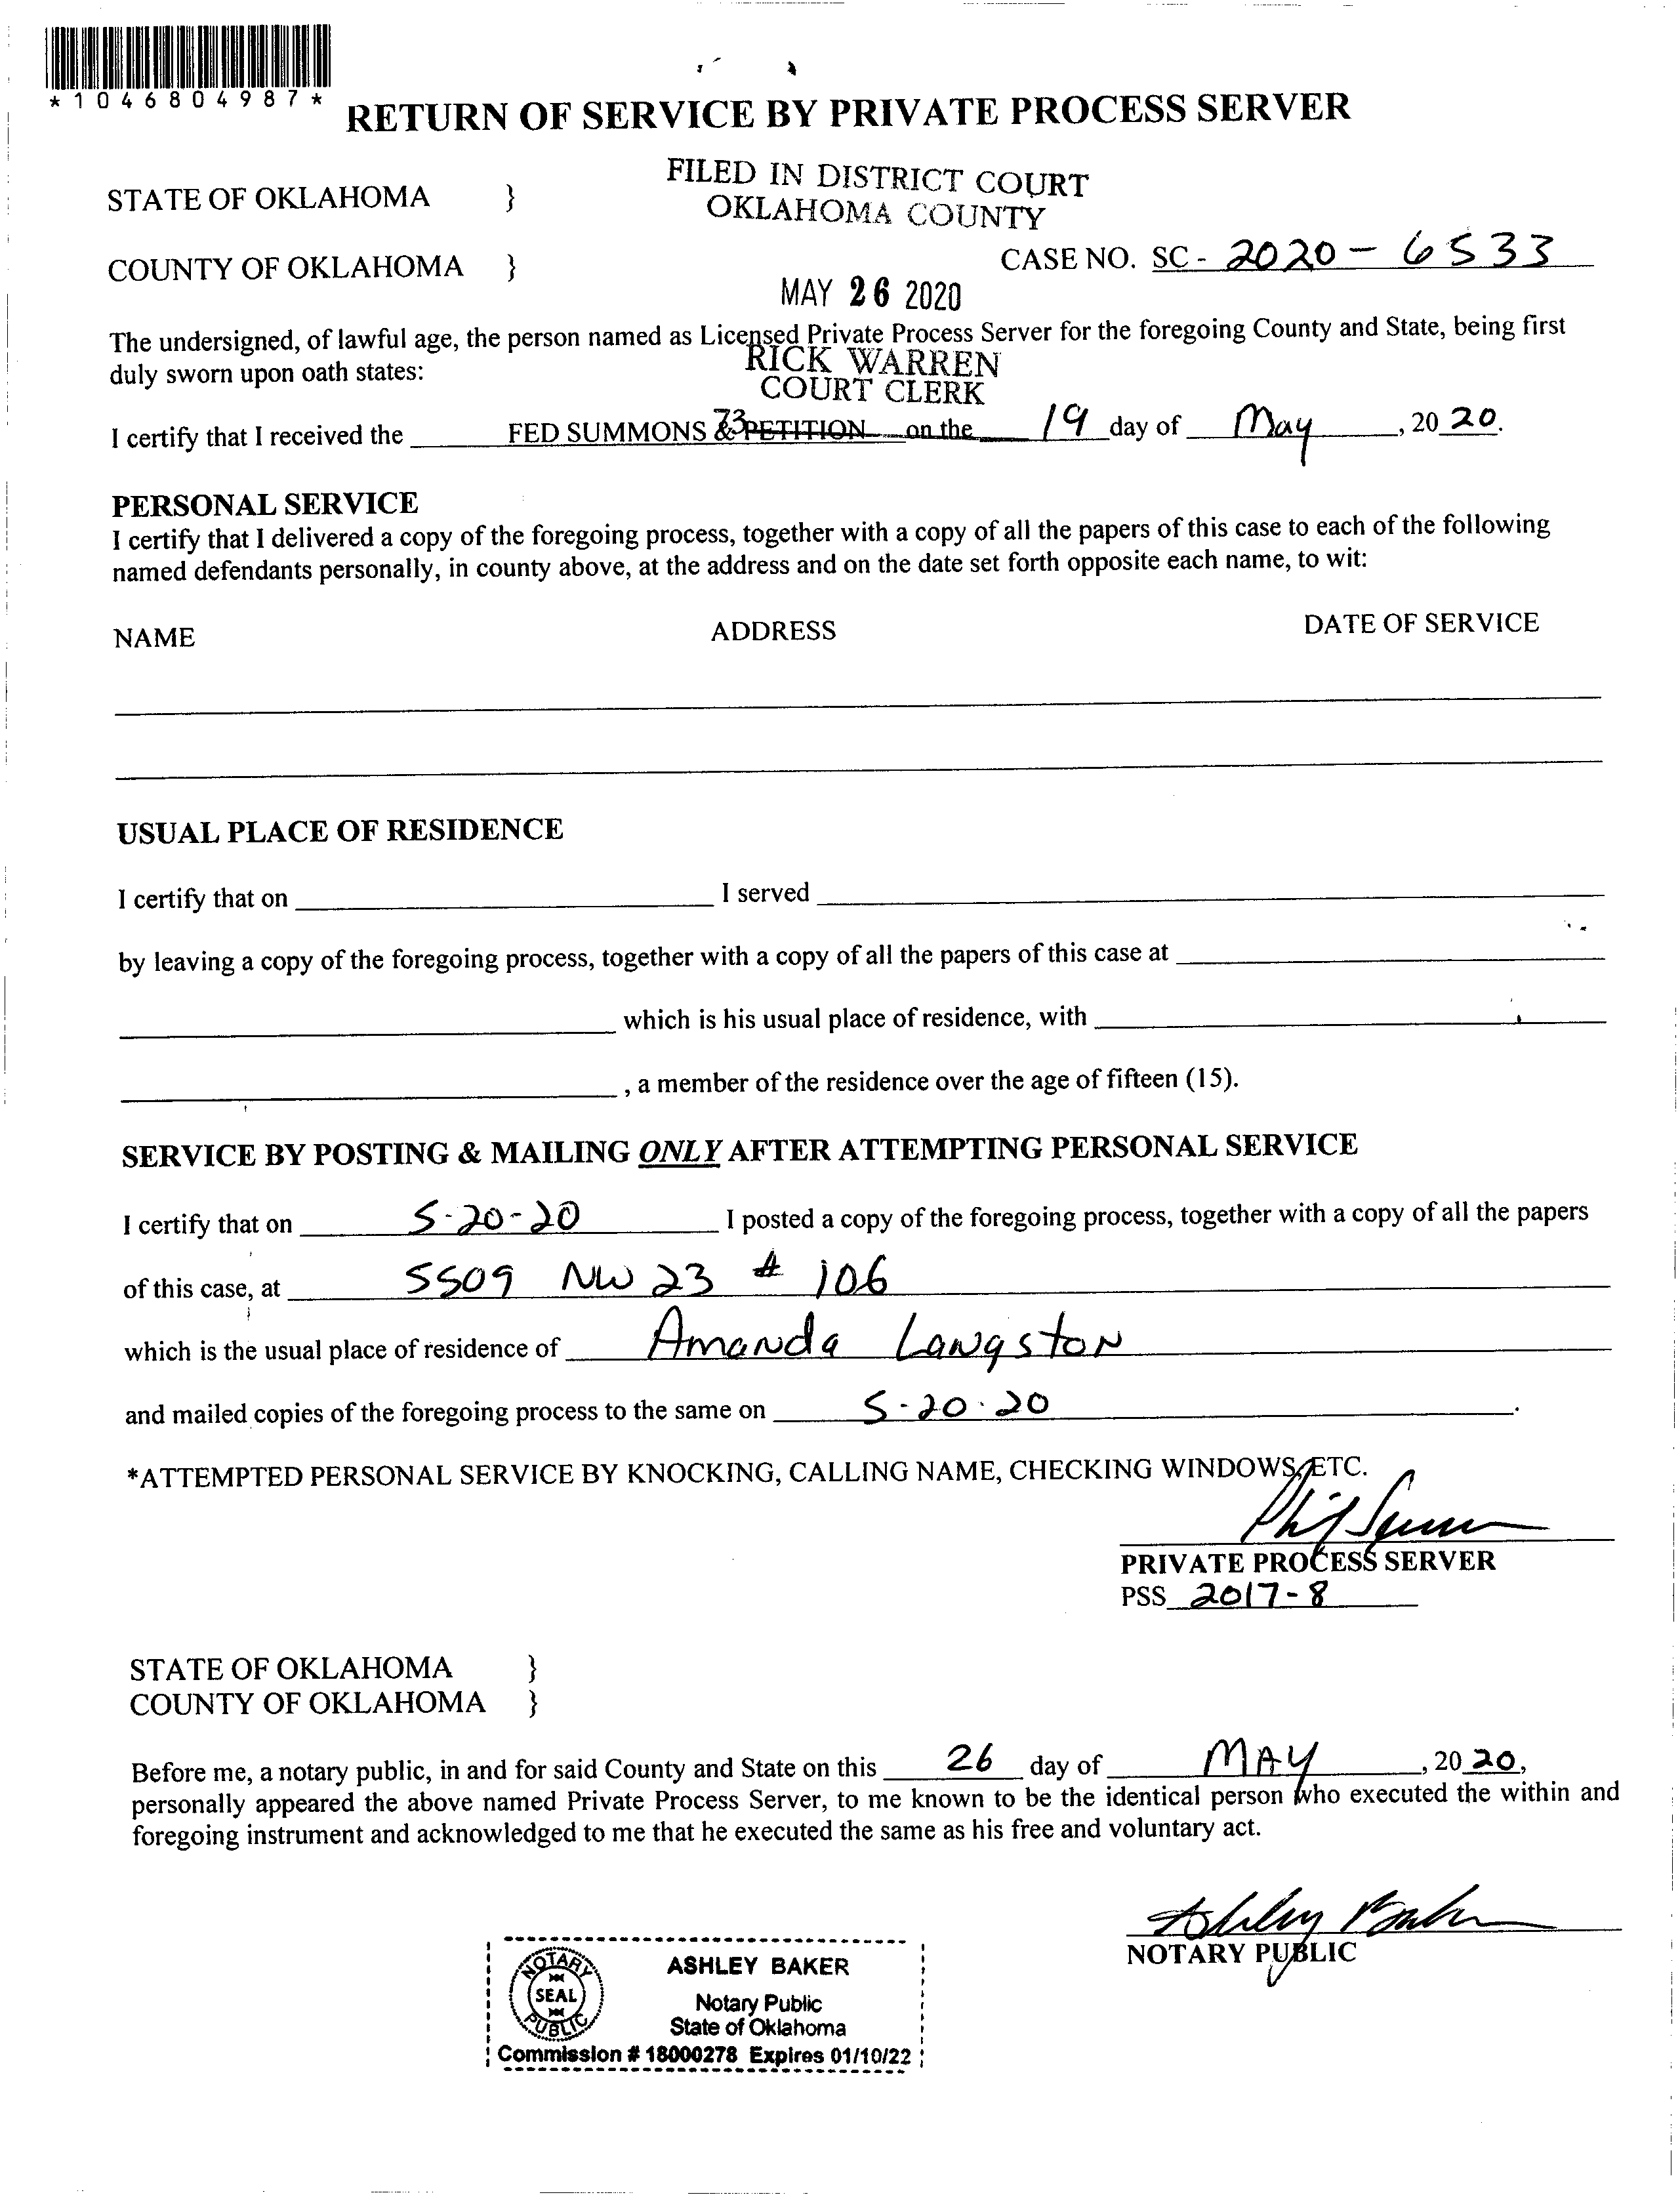 *1046804987*
RETURN OF SERVICE BY PRIVATE PROCESS SERVER
FILED IN DISTRICT COURT
OKLAHOMA COUNTY
STATE OF OKLAHOMA }
CASE NO. SC - 2020 - 6533
COUNTY OF OKLAHOMA }
MAY 26 2020
The undersigned, of lawful age, the person named as Licensed Private Process Server for the foregoing County and State, being first
duly sworn upon oath states:
RICK WARREN
COURT CLERK
73
I certify that I received the FED SUMMONS & PETITION on the 19 day of May, 20 20.
PERSONAL SERVICE
I certify that I delivered a copy of the foregoing process, together with a copy of all the papers of this case to each of the following
named defendants personally, in county above, at the address and on the date set forth opposite each name, to wit:
NAME ADDRESS DATE OF SERVICE
USUAL PLACE OF RESIDENCE
I certify that on I served
by leaving a copy of the foregoing process, together with a copy of all the papers of this case at
which is his usual place of residence, with
, a member of the residence over the age of fifteen (15).
SERVICE BY POSTING & MAILING ONLY AFTER ATTEMPTING PERSONAL SERVICE
I certify that on 5-20-20 I posted a copy of the foregoing process, together with a copy of all the papers
of this case, at 5509 NW 23 # 106
which is the usual place of residence of Amanda Langston
and mailed copies of the foregoing process to the same on 5-20-20.
*ATTEMPTED PERSONAL SERVICE BY KNOCKING, CALLING NAME, CHECKING WINDOWS, ETC.
PRIVATE PROCESS SERVER
PSS 2017-8
STATE OF OKLAHOMA }
COUNTY OF OKLAHOMA }
Before me, a notary public, in and for said County and State on this 26 day of MAY, 20 20,
personally appeared the above named Private Process Server, to me known to be the identical person who executed the within and
foregoing instrument and acknowledged to me that he executed the same as his free and voluntary act.
Ashley Baker
NOTARY PUBLIC
NOTARY
SEAL
PUBLIC
ASHLEY BAKER
Notary Public
State of Oklahoma
Commission # 18000278 Expires 01/10/22